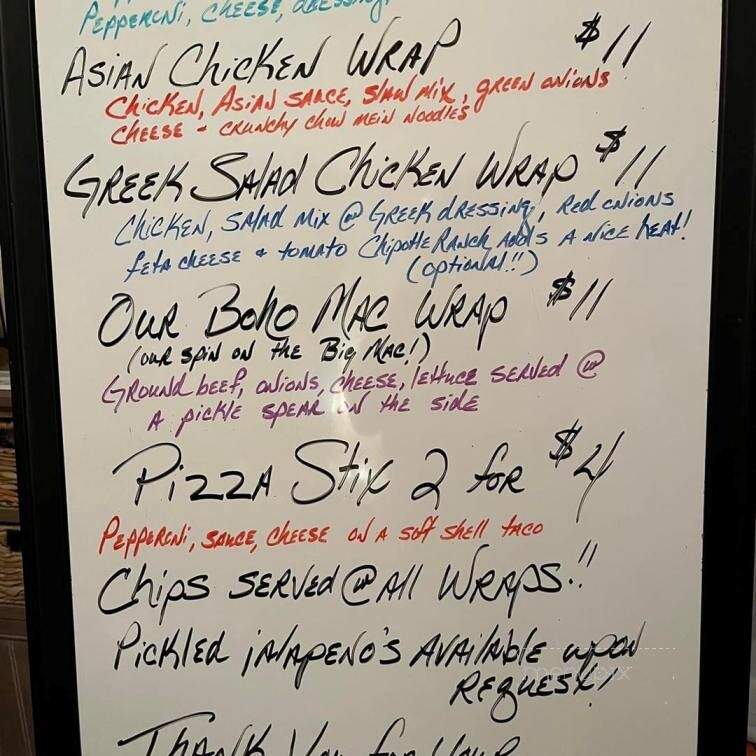 Pepperoni, cheese, dressing,
Asian Chicken Wrap $11
Chicken, Asian sauce, slaw mix, green onions
cheese - crunchy chow mein noodles
Greek Salad Chicken Wrap $11
Chicken, salad mix @ Greek dressing, Red onions
feta cheese & tomato Chipotle Ranch adds a nice heat!
(optional!!)
Our Boho Mac Wrap $11
(our spin on the Big Mac!)
Ground beef, onions, cheese, lettuce served @
a pickle spear on the side
Pizza Stix 2 for $4
Pepperoni, sauce, cheese on a soft shell taco
Chips served @ All Wraps!!
Pickled jalapeno's available upon
Request!
Thank You for Your